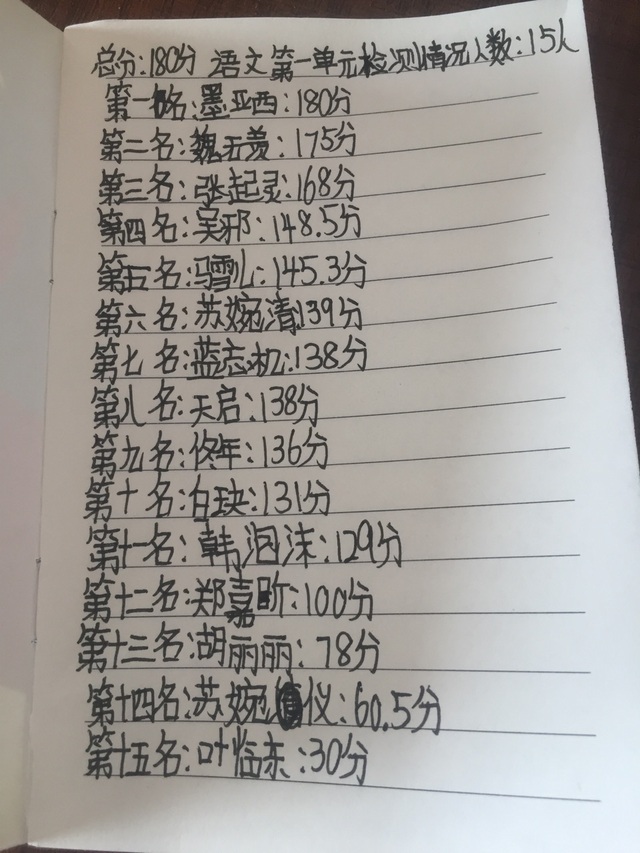 总分:180分 语文第一单元检测情况人数:15人
第一名:墨亚西:180分
第二名:魏无羡:175分
第三名:张起灵:168分
第四名:吴邪:148.5分
第五名:冯雪儿:145.3分
第六名:苏婉清:139分
第七名:蓝志机:138分
第八名:天启:138分
第九名:佟年:136分
第十名:白玦:131分
第十一名:韩泡沫:129分
第十二名:郑嘉昕:100分
第十三名:胡丽丽:78分
第十四名:苏婉仪:60.5分
第十五名:叶临东:30分